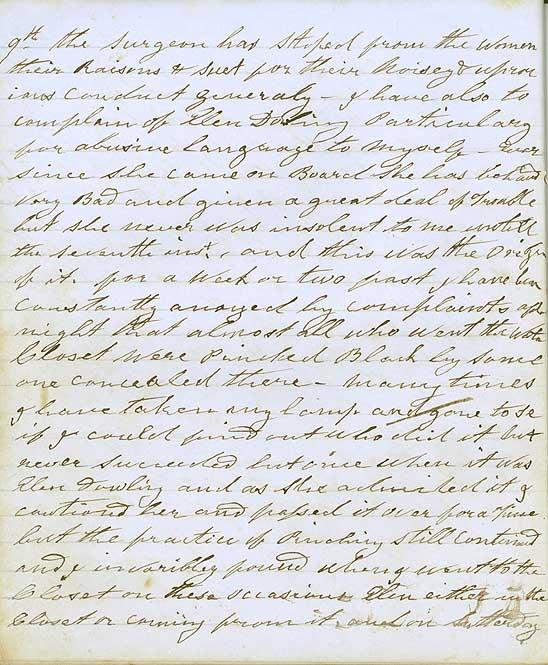 9th the surgeon has stoped from the Women
their Raisons & Suet for their Noisey & upror
ious Conduct generaly - I have also to
complain of Elen Dowling Particulary
for abusive language to myself - Ever
since she came on Board She has behaved
very Bad and given a great deal of Trouble
but she never was insolent to me untill
the seventh inst. and this was the Origin
of it. for a Week or two past I have been
constantly anoyed by complaints at
night that almost all who went the Water
Closet were Pinched Black by some
one concealed there - many times
I have taken my lamp and gone to se
if I could find out who did it but
never succeeded but once when it was
Elen Dowling and as she admited it I
cautioned her and passed it over for a Time
but the practice of Pinching still Continued
and I invaribly found when I went to the
Closet on these occasions Elen either in the
Closet or coming from it and on Satterday